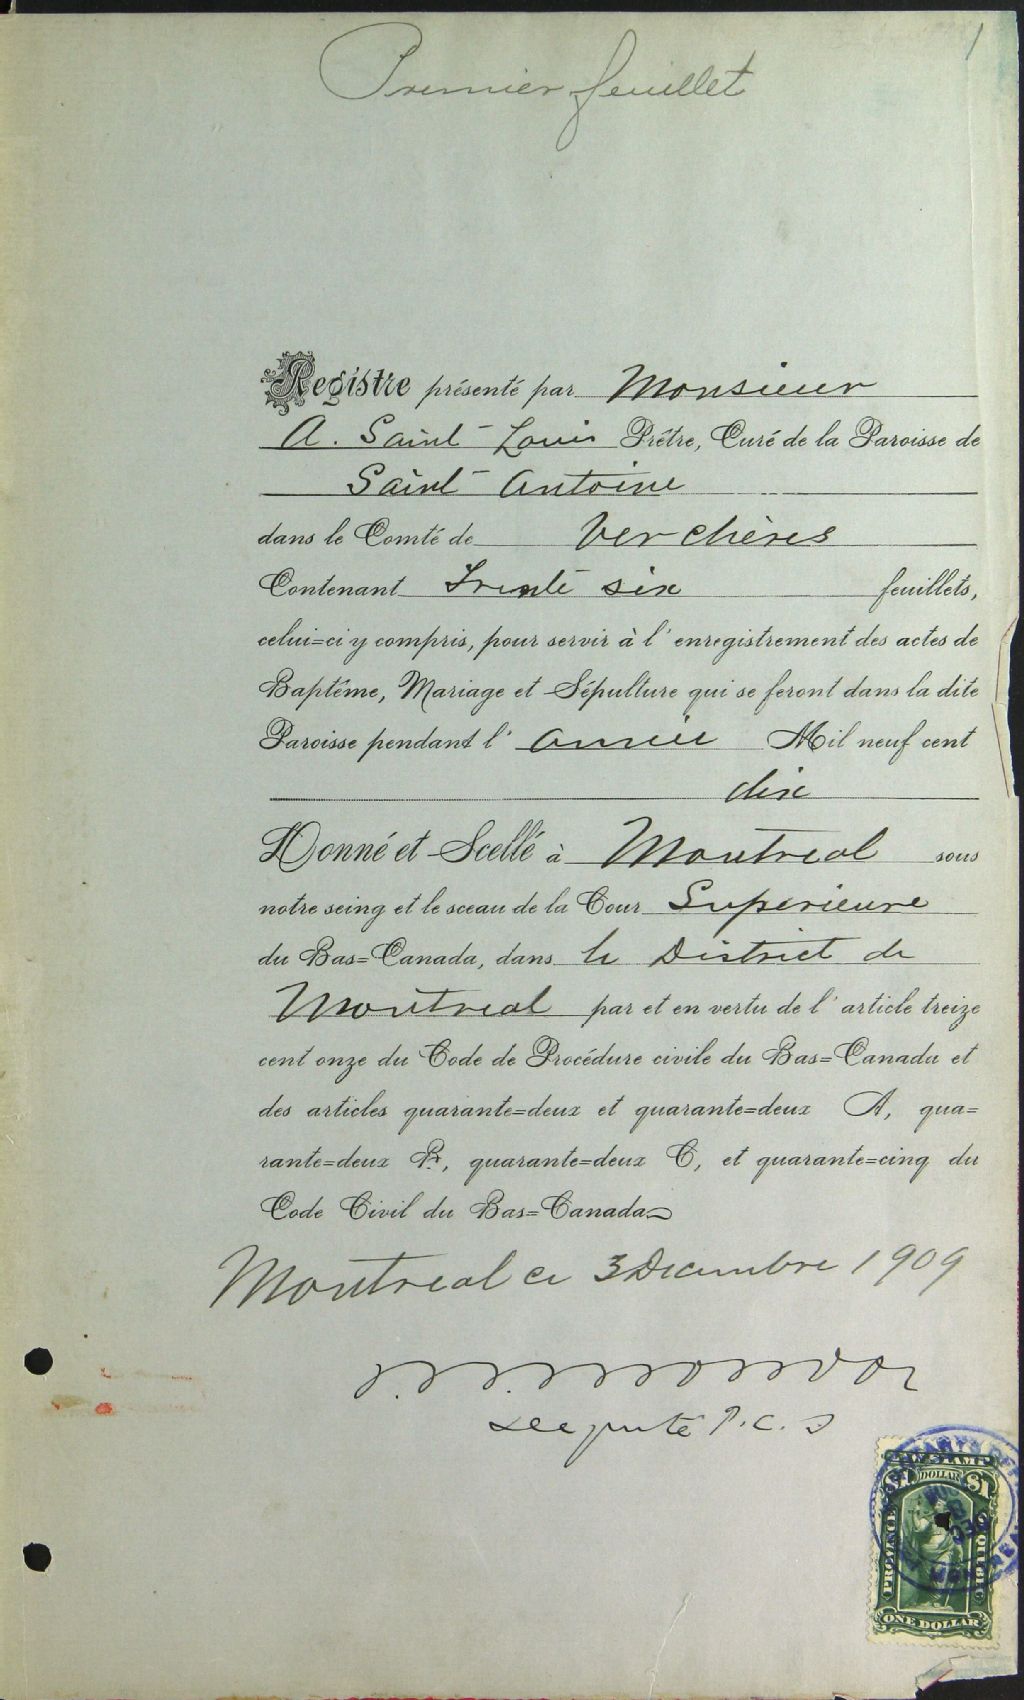 1
Premier feuillet
Registre présenté par Monsieur
A. Saint-Louis Prêtre, Curé de la Paroisse de
Saint-Antoine
dans le Comté de Verchères
Contenant Trente six feuillets,
celui=ci y compris, pour servir à l'enregistrement des actes de
Baptême, Mariage et Sépulture qui se feront dans la dite
Paroisse pendant l'année Mil neuf cent
dix
Donné et Scellé à Montreal sous
notre seing et le sceau de la Cour Superieure
du Bas=Canada, dans le District de
Montreal par et en vertu de l'article treize
cent onze du Code de Procédure civile du Bas=Canada et
des articles quarante=deux et quarante=deux A, qua=
rante=deux B, quarante=deux C, et quarante=cinq du
Code Civil du Bas=Canada
Montreal ce 3 Decembre 1909
Depute P.C.S
LAW STAMP
$1 DOLLAR $1
PROVINCE
QUEBEC
ONE DOLLAR